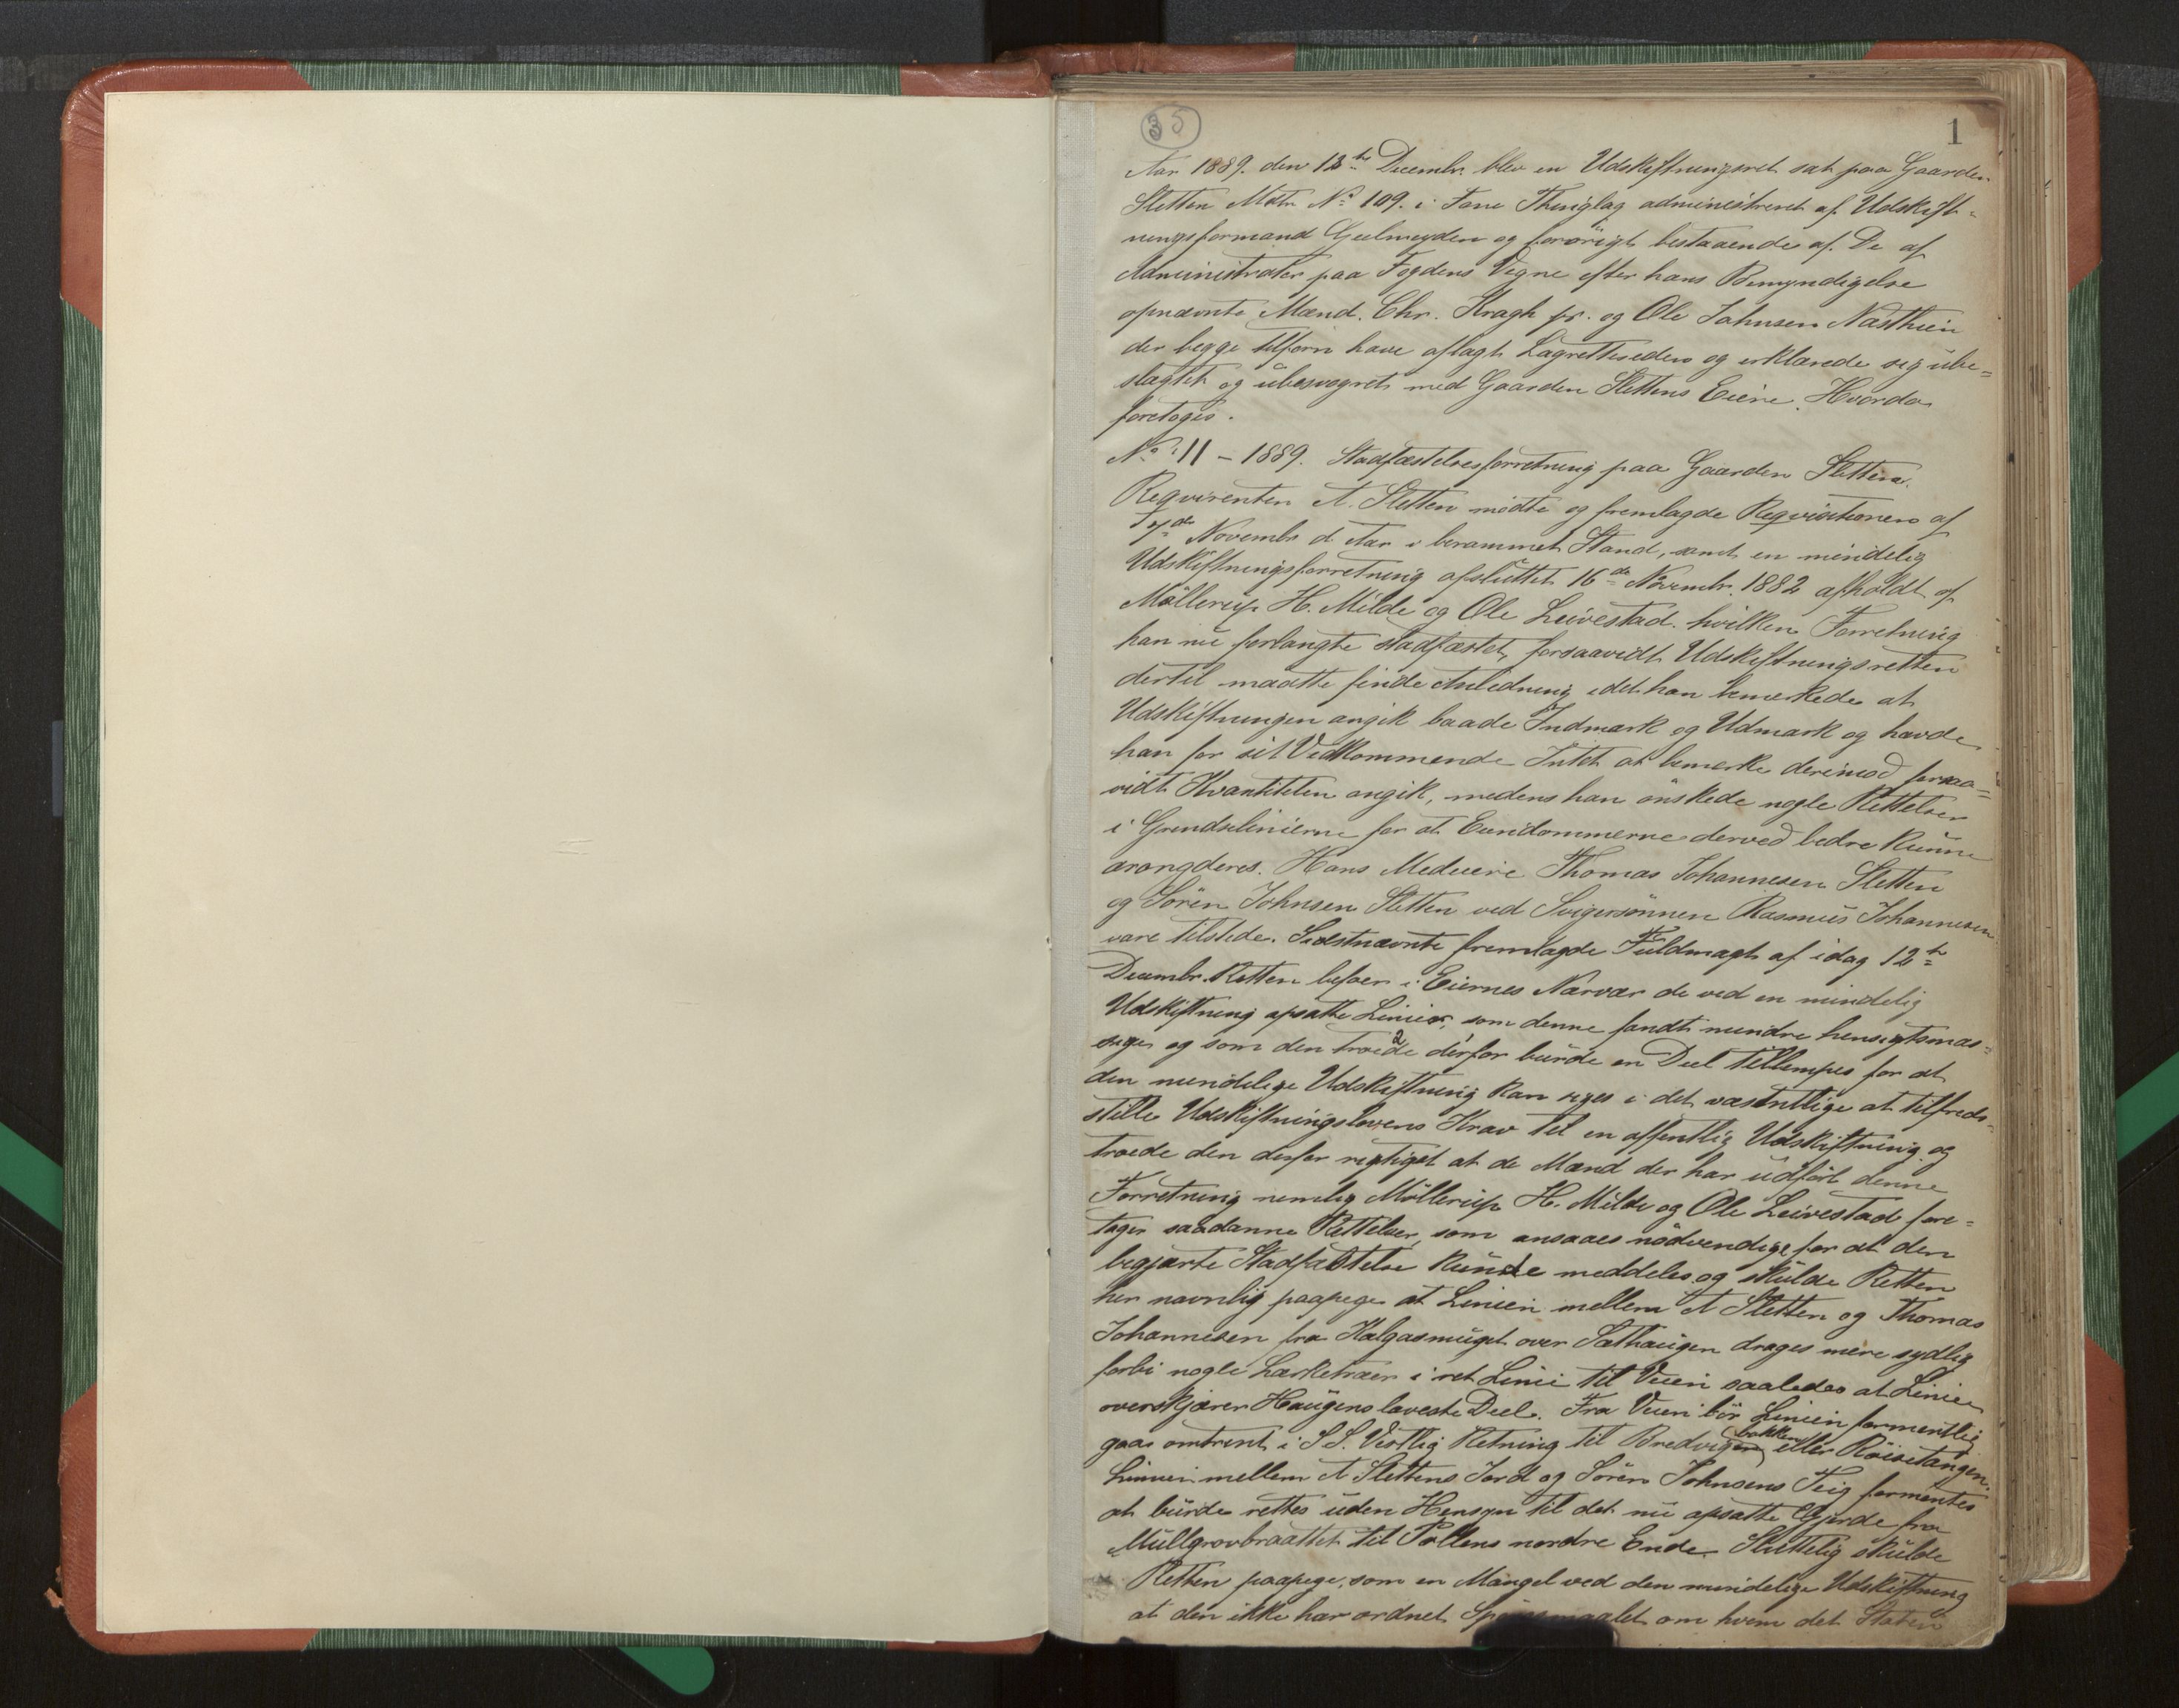 35
1
Aar 1889. den 12te Decembr. blev en Udskiftningsret sat paa Gaarden
Sletten Matr No 109. i Fane Thinglag administreret af Udskift-
ningsformand Geelmeyden og forøvrigt bestaaende af De af
Administrator paa Fogdens Vegne efter hans Bemyndigelse
opnævnte Mænd. Chr. Kragh jr. og Ole Johnsen Næsthun
der begge tilforn have aflagt Lagretteseden og erklærede sig ube-
slægtet og ubesvogret med Gaarden Slettens Eiere. Hvorda
foretoges.
No 11 - 1889. Stadfæstelsesforretning paa Gaarden Sletten.
Reqvirenten A. Sletten mødte og fremlagde Reqvisitionen af
7de Novembr d. Aar i berammet Stand, samt en mindelig
Udskiftningsforretning afsluttet 16de Novembr. 1882 afholdt af
Møllerup H. Milde og Ole Leivestad. hvilken Forretning
han nu forlangte stadfæstet, forsaavidt Udskiftningsretten
dertil maatte finde Anledning idet han bemerkede at
Udskiftningen angik baade Indmark og Udmark og havde
han for sit Vedkommende Intet at bemerke derimod forsaa-
vidt Kvantiteten angik, medens han ønskede nogle Rettelser
i Grændselinierne for at Eiendommerne derved bedre kunne
arangderes. Hans Medeiere Thomas Johannesen Sletten
og Søren Johnsen Sletten ved Svigersønnen Rasmus Johannesen
vare tilstede. Sidstnævnte fremlagde Fuldmagt af idag 12te
Decembr. Retten befoer i Eiernes Nærvær de ved en mindelig
Udskiftning opsatte Linier, som denne fandt mindre hensigtsmæs-
sige og som den troede derfor burde en Deel tillempes for at
den mindelige Udskiftning kan siges i det væsentlige at tilfreds-
stille Udskiftningslovens Krav til en offentlig Udskiftning og
troede den derfor rigtigst at de Mænd der har udført denne
Forretning nemlig Møllerup H. Milde og Ole Leivestad fore-
tager saadanne Rettelser, som ansaaes nødvendige for at den
begjærte Stadfæstelse kunde meddeles og skulde Retten
her navnlig paapege at Linien mellem A Sletten og Thomas
Johannesen fra Kalgasmuget over Sæthaugen drages mere sydlig
forbi nogle Lærketræer i ret Linie til Veien saaledes at Linien
overskjærer Haugens laveste Deel. Fra Veien bør Linien formentlig
gaae omtrent i S.S. Vestlig Retning til Bredvigen bakken eller Røisetangen.
Linien mellem A Slettens Jord og Søren Johnsens Teig formentes
at burde rettes uden Hensyn til det nu opsatte Gjerde fra
Muldgrovbraattet til Pollens nordre Ende. Sluttelig skulde
Retten paapege, som en Mangel ved den mindelige Udskiftning
at den ikke har ordnet Spørsmaalet om hvem det Støten